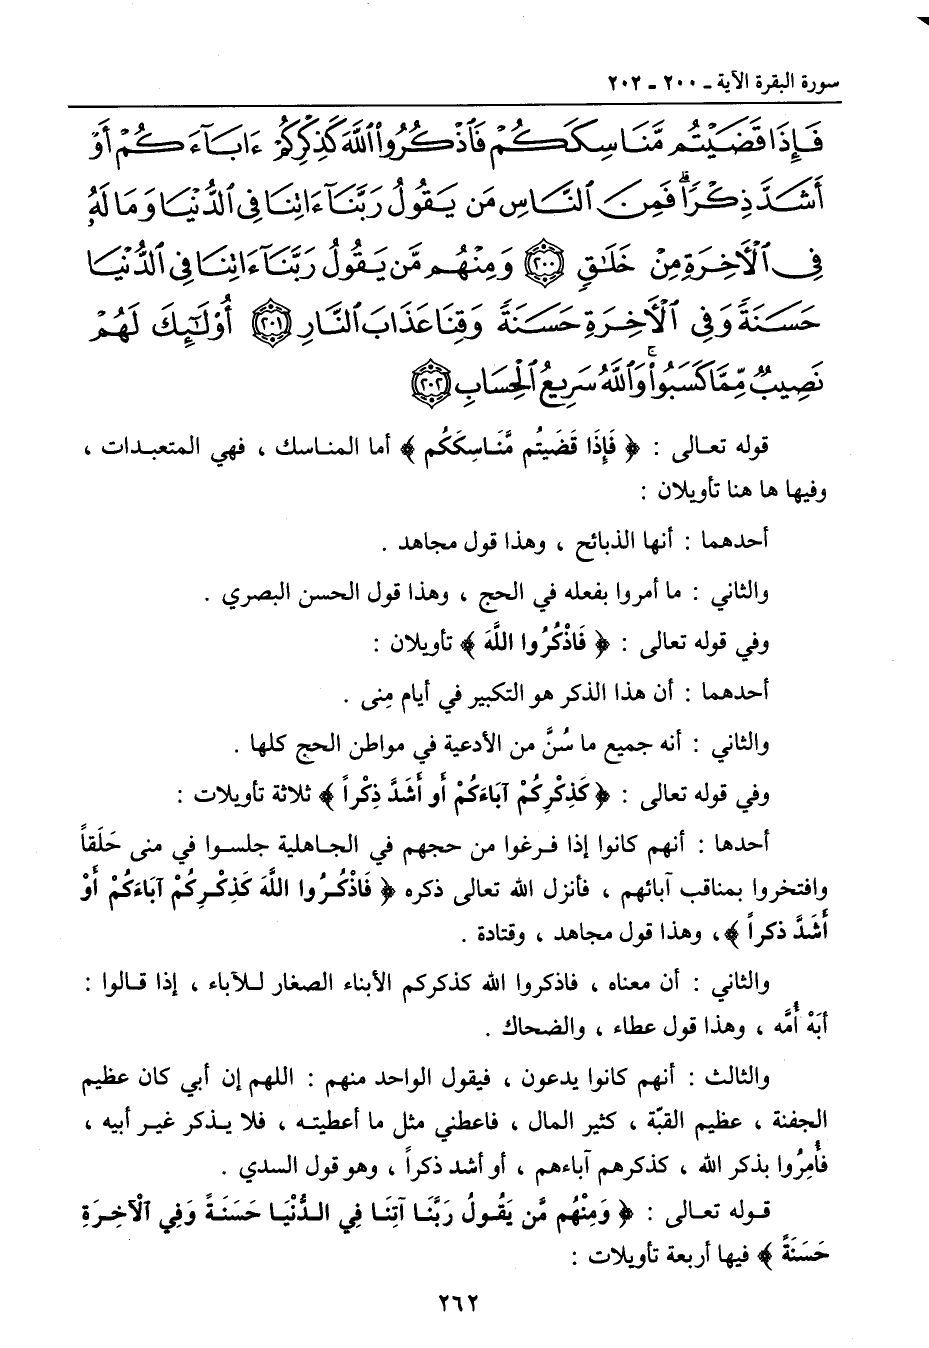 سورة البقرة الآية ـ ٢٠٠ ـ ٢٠٢
فَإِذَا قَضَيْتُم مَّنَاسِكَكُمْ فَٱذْكُرُوا۟ ٱللَّهَ كَذِكْرِكُمْ ءَابَآءَكُمْ أَوْ
أَشَدَّ ذِكْرًا ۗ فَمِنَ ٱلنَّاسِ مَن يَقُولُ رَبَّنَآ ءَاتِنَا فِى ٱلدُّنْيَا وَمَا لَهُۥ
فِى ٱلْأَخِرَةِ مِنْ خَلَٰقٍ ﴿٢٠٠﴾ وَمِنْهُم مَّن يَقُولُ رَبَّنَآ ءَاتِنَا فِى ٱلدُّنْيَا
حَسَنَةً وَفِى ٱلْأَخِرَةِ حَسَنَةً وَقِنَا عَذَابَ ٱلنَّارِ ﴿٢٠١﴾ أُو۟لَٰٓئِكَ لَهُمْ
نَصِيبٌ مِّمَّا كَسَبُوا۟ ۚ وَٱللَّهُ سَرِيعُ ٱلْحِسَابِ ﴿٢٠٢﴾
قوله تعـالى : ﴿ فَإِذَا قَضَيتُم مَّنَاسِكَكُم ﴾ أما المنـاسك ، فهي المتعبـدات ،
وفيها ها هنا تأويلان :
أحدهما : أنها الذبائح ، وهذا قول مجاهد .
والثاني : ما أمروا بفعله في الحج ، وهذا قول الحسن البصري .
وفي قوله تعالى : ﴿ فَاذْكُرُوا اللَّهَ ﴾ تأويلان :
أحدهما : أن هذا الذكر هو التكبير في أيام مِنى .
والثاني : أنه جميع ما سُنَّ من الأدعية في مواطن الحج كلها .
وفي قوله تعالى : ﴿ كَذِكْرِكُمْ آبَاءَكُمْ أَو أَشَدَّ ذِكْراً ﴾ ثلاثة تأويلات :
أحدها : أنهم كانوا إذا فـرغوا من حجهم في الجـاهلية جلسـوا في منى حَلَقاً
وافتخروا بمناقب آبائهم ، فأنزل الله تعالى ذكره ﴿ فَاذْكُـرُوا اللَّهَ كَذِكْـرِكُمْ آبَاءَكُمْ أَوْ
أَشَدَّ ذكراً ﴾، وهذا قول مجاهد ، وقتادة .
والثاني : أن معناه ، فاذكروا الله كذكركم الأبناء الصغار لـلآباء ، إذا قـالوا :
أَبَهْ أُمَّه ، وهذا قول عطاء ، والضحاك .
والثالث : أنهم كانوا يدعون ، فيقول الواحد منهم : اللهم إن أبي كان عظيم
الجفنة ، عظيم القبّة ، كثير المال ، فاعطني مثل ما أعطيتـه ، فلا يـذكر غيـر أبيه ،
فأُمِرُوا بذكر الله ، كذكرهم آباءهم ، أو أشد ذكراً ، وهو قول السدي .
قـوله تعـالى : ﴿ وَمِنْهُم مَّن يَقُولُ رَبَّنَـا آتِنَـا فِي الـدُّنْيَـا حَسَنَـةً وَفِي الْآخِـرَةِ
حَسَنَةً ﴾ فيها أربعة تأويلات :
٢٦٢